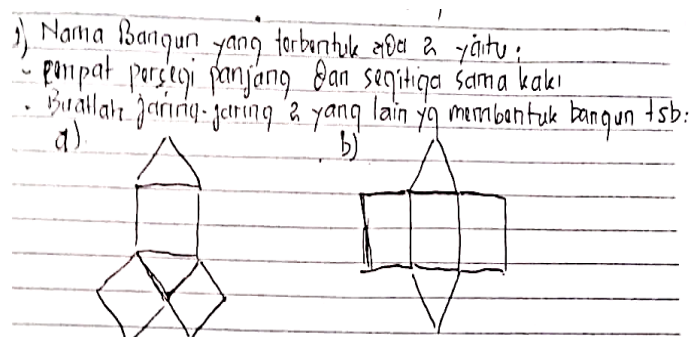 1) Nama Bangun yang terbentuk ada 2 yaitu:
- empat persegi panjang dan segitiga sama kaki
. Buatlah jaring-jaring 2 yang lain yg membentuk bangun tsb:
a). b)